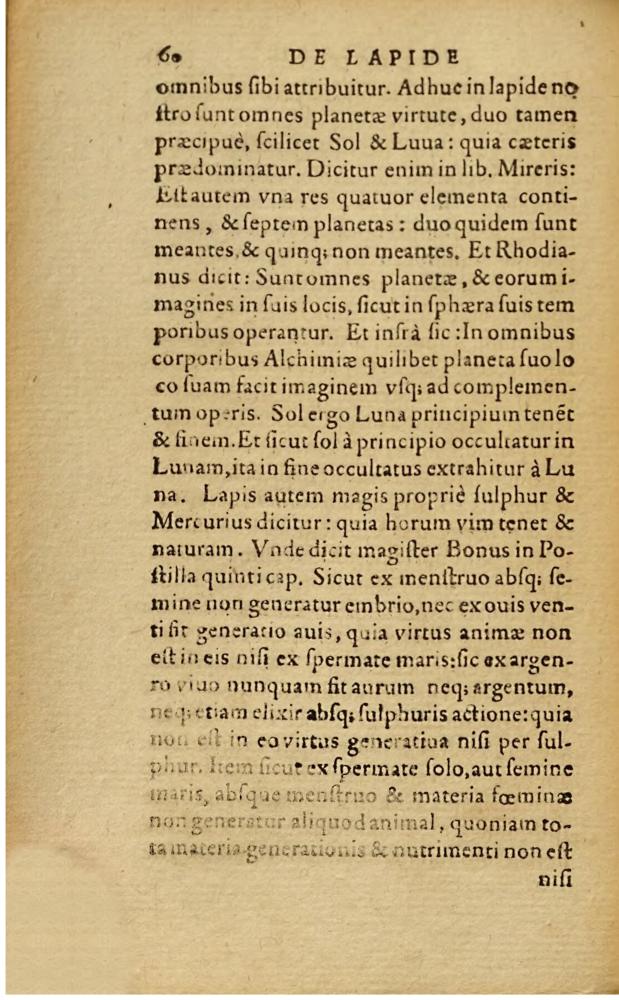 60 DE LAPIDE
omnibus ſibi attribuitur. Adhuc in lapide no
ſtro ſunt omnes planetæ virtute, duo tamen
præcipuè, ſcilicet Sol & Luua: quia cæteris
prædominatur. Dicitur enim in lib. Mireris:
Eſt autem vna res quatuor elementa conti-
nens, & ſeptem planetas: duo quidem ſunt
meantes, & quinq; non meantes. Et Rhodia-
nus dicit: Sunt omnes planetæ, & eorum i-
magines in ſuis locis, ſicut in ſphæra ſuis tem
poribus operantur. Et infrà ſic: In omnibus
corporibus Alchimiæ quilibet planeta ſuo lo
co ſuam facit imaginem vſq; ad complemen-
tum operis. Sol ergo Luna principium tenẽt
& finem. Et ſicut ſol à principio occultatur in
Lunam, ita in fine occultatus extrahitur à Lu
na. Lapis autem magis propriè ſulphur &
Mercurius dicitur: quia horum vim tenet &
naturam. Vnde dicit magiſter Bonus in Po-
ſtilla quinti cap. Sicut ex menſtruo abſq; ſe-
mine non generatur embrio, nec ex ouis ven-
ti fit generatio auis, quia virtus animæ non
eſt in eis niſi ex ſpermate maris: ſic ex argen-
to viuo nunquam fit aurum neq; argentum,
neq; etiam elixir abſq; ſulphuris actione: quia
non eſt in eo virtus generatiua niſi per ſul-
phur. Item ſicut ex ſpermate ſolo, aut ſemine
maris, abſque menſtruo & materia fœminæ
non generatur aliquod animal, quoniam to-
ta materia generationis & nutrimenti non eſt
niſi